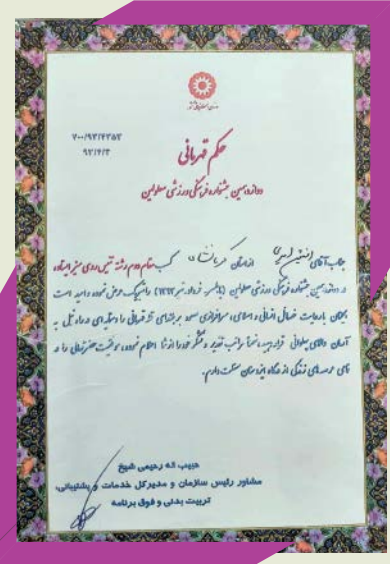 ۷۰۰/۹۳/۴۳۵۳
۹۳/۴/۳
حکم قهرمانی
دوازدهمین جشنواره فرهنگی ورزشی معلولین
جناب آقای از استان کرمانشاه کسب مقام دوم رشته تنیس روی میز ایستاده
در دوازدهمین جشنواره فرهنگی ورزشی معلولین را تبریک عرض نموده و امید است
با رعایت خصائل انسانی و اسلامی، سرافرازی
آرمان والای پهلوانی قرار دهید، ضمناً مراتب تقدیر و تشکر خود را اعلام نموده، موفقیت حضرتعالی را در
عرصه‌های زندگی از درگاه ایزد منان مسئلت دارم.
حبیب اله رحیمی شیخ
مشاور رئیس سازمان و مدیرکل خدمات و پشتیبانی،
تربیت بدنی و فوق برنامه